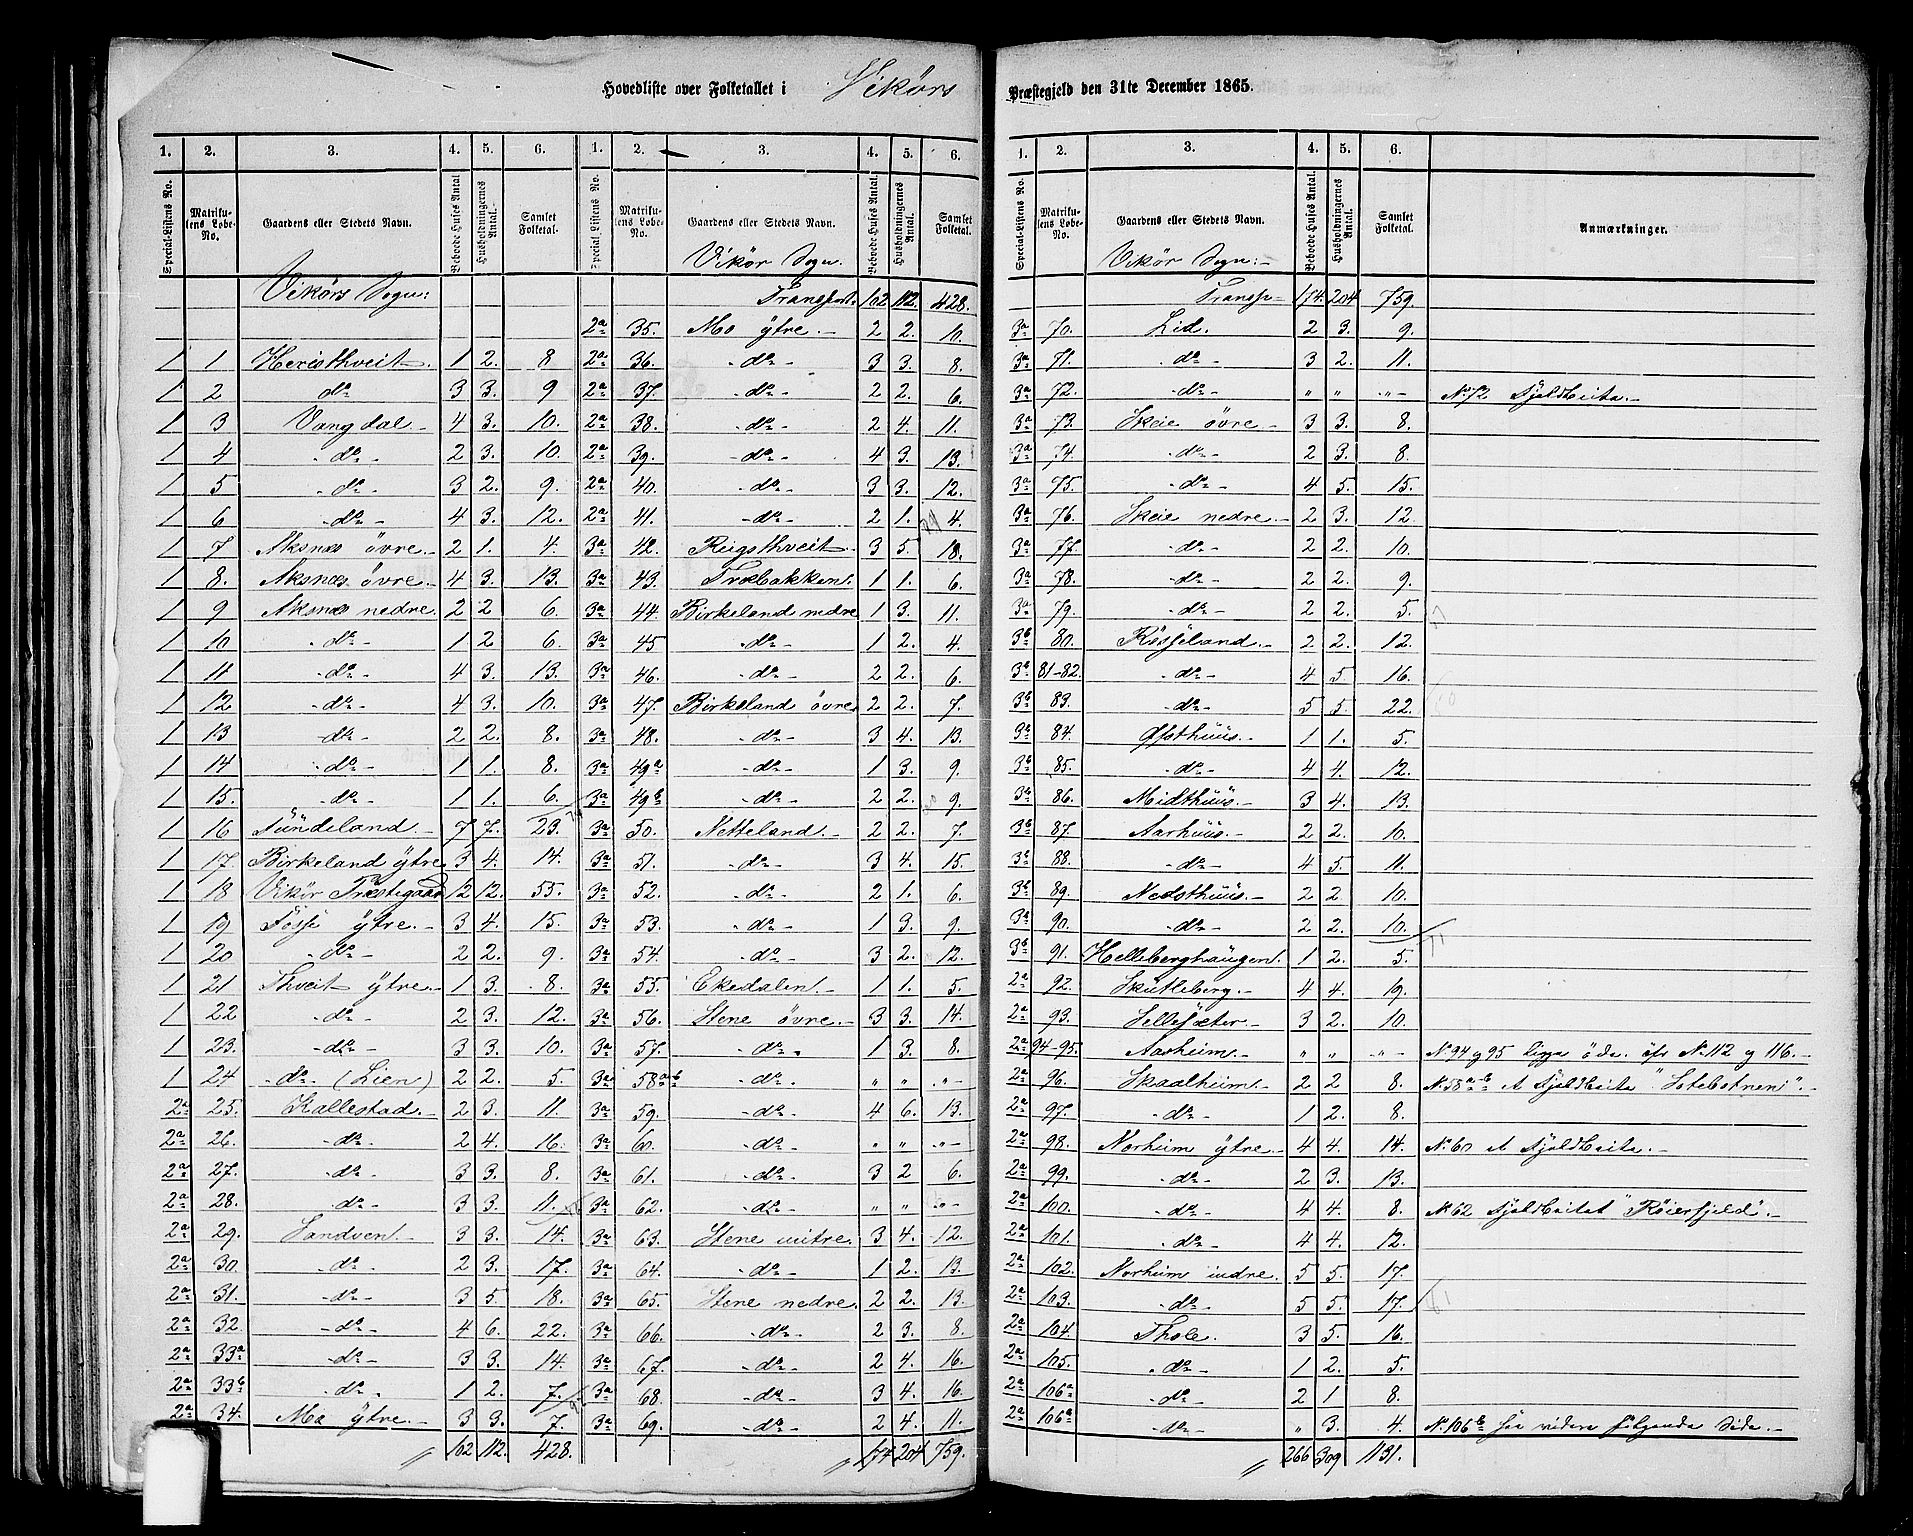 Hovedliste over Folketallet i Vikørs Præstegjeld den 31te December 1865.
1. 2. 3. 4. 5. 6. 1. 2. 3. 4. 5. 6.
Special-Listens No. Matrikulens Løbe-No. Gaardens eller Stedets Navn. Beboede Huses Antal Husholdningernes Antal. Samlet Folketal. Special-Listens No. Matrikulens Løbe-No. Gaardens eller Stedets Navn. Beboede Huses Antal. Husholdningernes Antal. Samlet Folketal.
Vikørs Sogn: Vikør Sogn:
Transport. 102 112. 428.
2a 35. Mo ÿtre. 2 2. 10.
1 1 Heristhveit. 1 2. 8 2a 36. do 3 3. 8.
1 2 do 3 3. 9 2a 37. do 2 2. 6.
1 3 Vangdal 4 3. 10. 2a 38. do 2 4. 11.
1 4 do 2 3. 10. 2a 39. do 4 3. 13.
1 5 do 3 2. 9. 2a 40. do 3 3. 12.
1 6 do 4 3. 12. 2a 41. do 2 1. 4.
1 7 Aksnæs övre. 2 1. 4. 3a 42. Reigsthveit 3 5. 18.
1 8. Aksnæs övre 4 3. 13. 3a 43. Træbakken 1 1. 6.
1 9 Aksnæs nedre 2 2 6. 3a 44. Birkeland nedre 1 3. 11.
1 10 do 1 2 6. 3a 45 do 1 2. 4.
1 11 do 4 3. 13. 3a 46. do 2 2. 6.
1 12 do 4 3. 10. 3a 47. Birkeland övre 2 2. 7.
1 13 do 2 2. 8. 3a 48. do 3 4. 13.
1 14 do 1 1. 8. 3a 49a do 1 3. 9.
1 15. do 1 1. 6. 3a 49b do 2 2. 9.
1 16 Sündeland. 7 7. 23. 3a 50. Netteland. 2 2. 7.
1 17. Birkeland ÿtre 3 4. 14. 3a 51. do 3 4. 15.
1 18 Vikör Præstegaard 12 12. 55. 3a 52. do 2 1. 6.
1 19 Fosse ÿtre. 3 4. 15. 3a 53. do 1 3. 9.
1 20 do 2 2. 9. 3a 54. do 3 2. 12.
1 21 Thveit ÿtre. 1 3. 8. 3a 55. Ekedalen. 1 1. 5.
1 22 do 2 3. 12. 3a 56. Stene övre. 3 3. 14.
1 23. do 3 3. 10. 3a 57. do 1 3. 8.
1 24 do (Lien) 2 2. 5. 3a 58a-b do " " "
2a 25. Kallestad. 2 3. 11. 3a 59. do 4 6. 13.
2a 26. do 2 4. 16. 3a 60. do " " "
2a 27. do 3 3. 8. 3a 61. do 3 2 6.
2a 28. do 3 3. 11. 3a 62. do " " "
2a 29. Sandven 3 3. 14. 3a 63. Stene mitre. 3 4. 12.
2a 30. do 2 3. 17. 3a 64. do 1 2. 13.
2a 31. do 3 5. 18. 3a 65. Stene nedre. 2 2. 13.
2a 32. do 4 6. 22. 3a 66. do 2 3. 8.
2a 33a do 3 3. 14. 3a 67. do 2 4. 16.
2a 33b do 1 2. 7. 3a 68. do 3 4. 16.
2a 34. Mo ÿtre. 3 3. 7. 3a 69. do 2 4. 11.
102 112. 428. 174 204 759.
1. 2. 3. 4. 5. 6.
Special-Listens No. Matrikulens Løbe-No. Gaardens eller Stedets Navn. Beboede Huses Antal. Husholdningernes Antal. Samlet Folketal. Anmærkninger.
Vikör Sogn:
Transp 174. 204 759.
3a 70. Lid. 2 3. 9.
3a 71. do 3 2. 11.
3a 72. do " " " No. 72 Fjeldbeite.
3a 73. Skeie övre 3 3. 8.
3a 74. do 2 3. 8.
3a 75. do 4 5. 15.
3a 76. Skeie nedre. 2 3. 12.
3a 77. do 2 2. 10.
3a 78. do 2 2. 9.
3a 79. do 2 2. 5.
3b 80. Rösseland 2 2. 12.
3b 81-82. do 4 5. 16.
3b 83. do 5 5. 22.
3b 84. Øfsthüüs. 1 1. 5.
3b 85. do 4 4. 12.
3b 86. Midthüüs. 3 4. 13.
3b 87. Aarhüüs. 2 2. 10.
3b 88. do 4 5. 11.
3b 89. Nedsthüüs. 2 2. 10.
3a 90. do 2 2. 10.
3b 91. Helleberghaugen. 1 2. 5.
2a 92. Skütleberg. 4 4. 19.
2a 93. Sellesæter. 3 2. 10.
2a 94-95. Aarheim. " " " No. 94 og 95 ligge öde. cfr No. 112 og 116.
2a 96. Skaalheim. 2 2 8. No. 58a-b et Fjeldbeite "Stebotnen".
2a 97. do 1 2. 8.
2a 98. Norheim ÿtre. 4 4. 14. No. 60 et Fjeldbeite.
2a 99. do 2 3. 13.
2a 100. do 4 4. 8. No. 62 Fjeldbeitet "Röierfjeld".
2a 101. do 4 4. 12.
2a 102. Norheim indre. 5 5. 17.
2a 103. do 5 5. 17.
2a 104. Thole. 3 5. 16.
2a 105. do 1 2. 5.
2a 106a do 2 1 8.
2a 106a do " 3. 4. No. 106b see videre følgende Side.
266 309 1131.